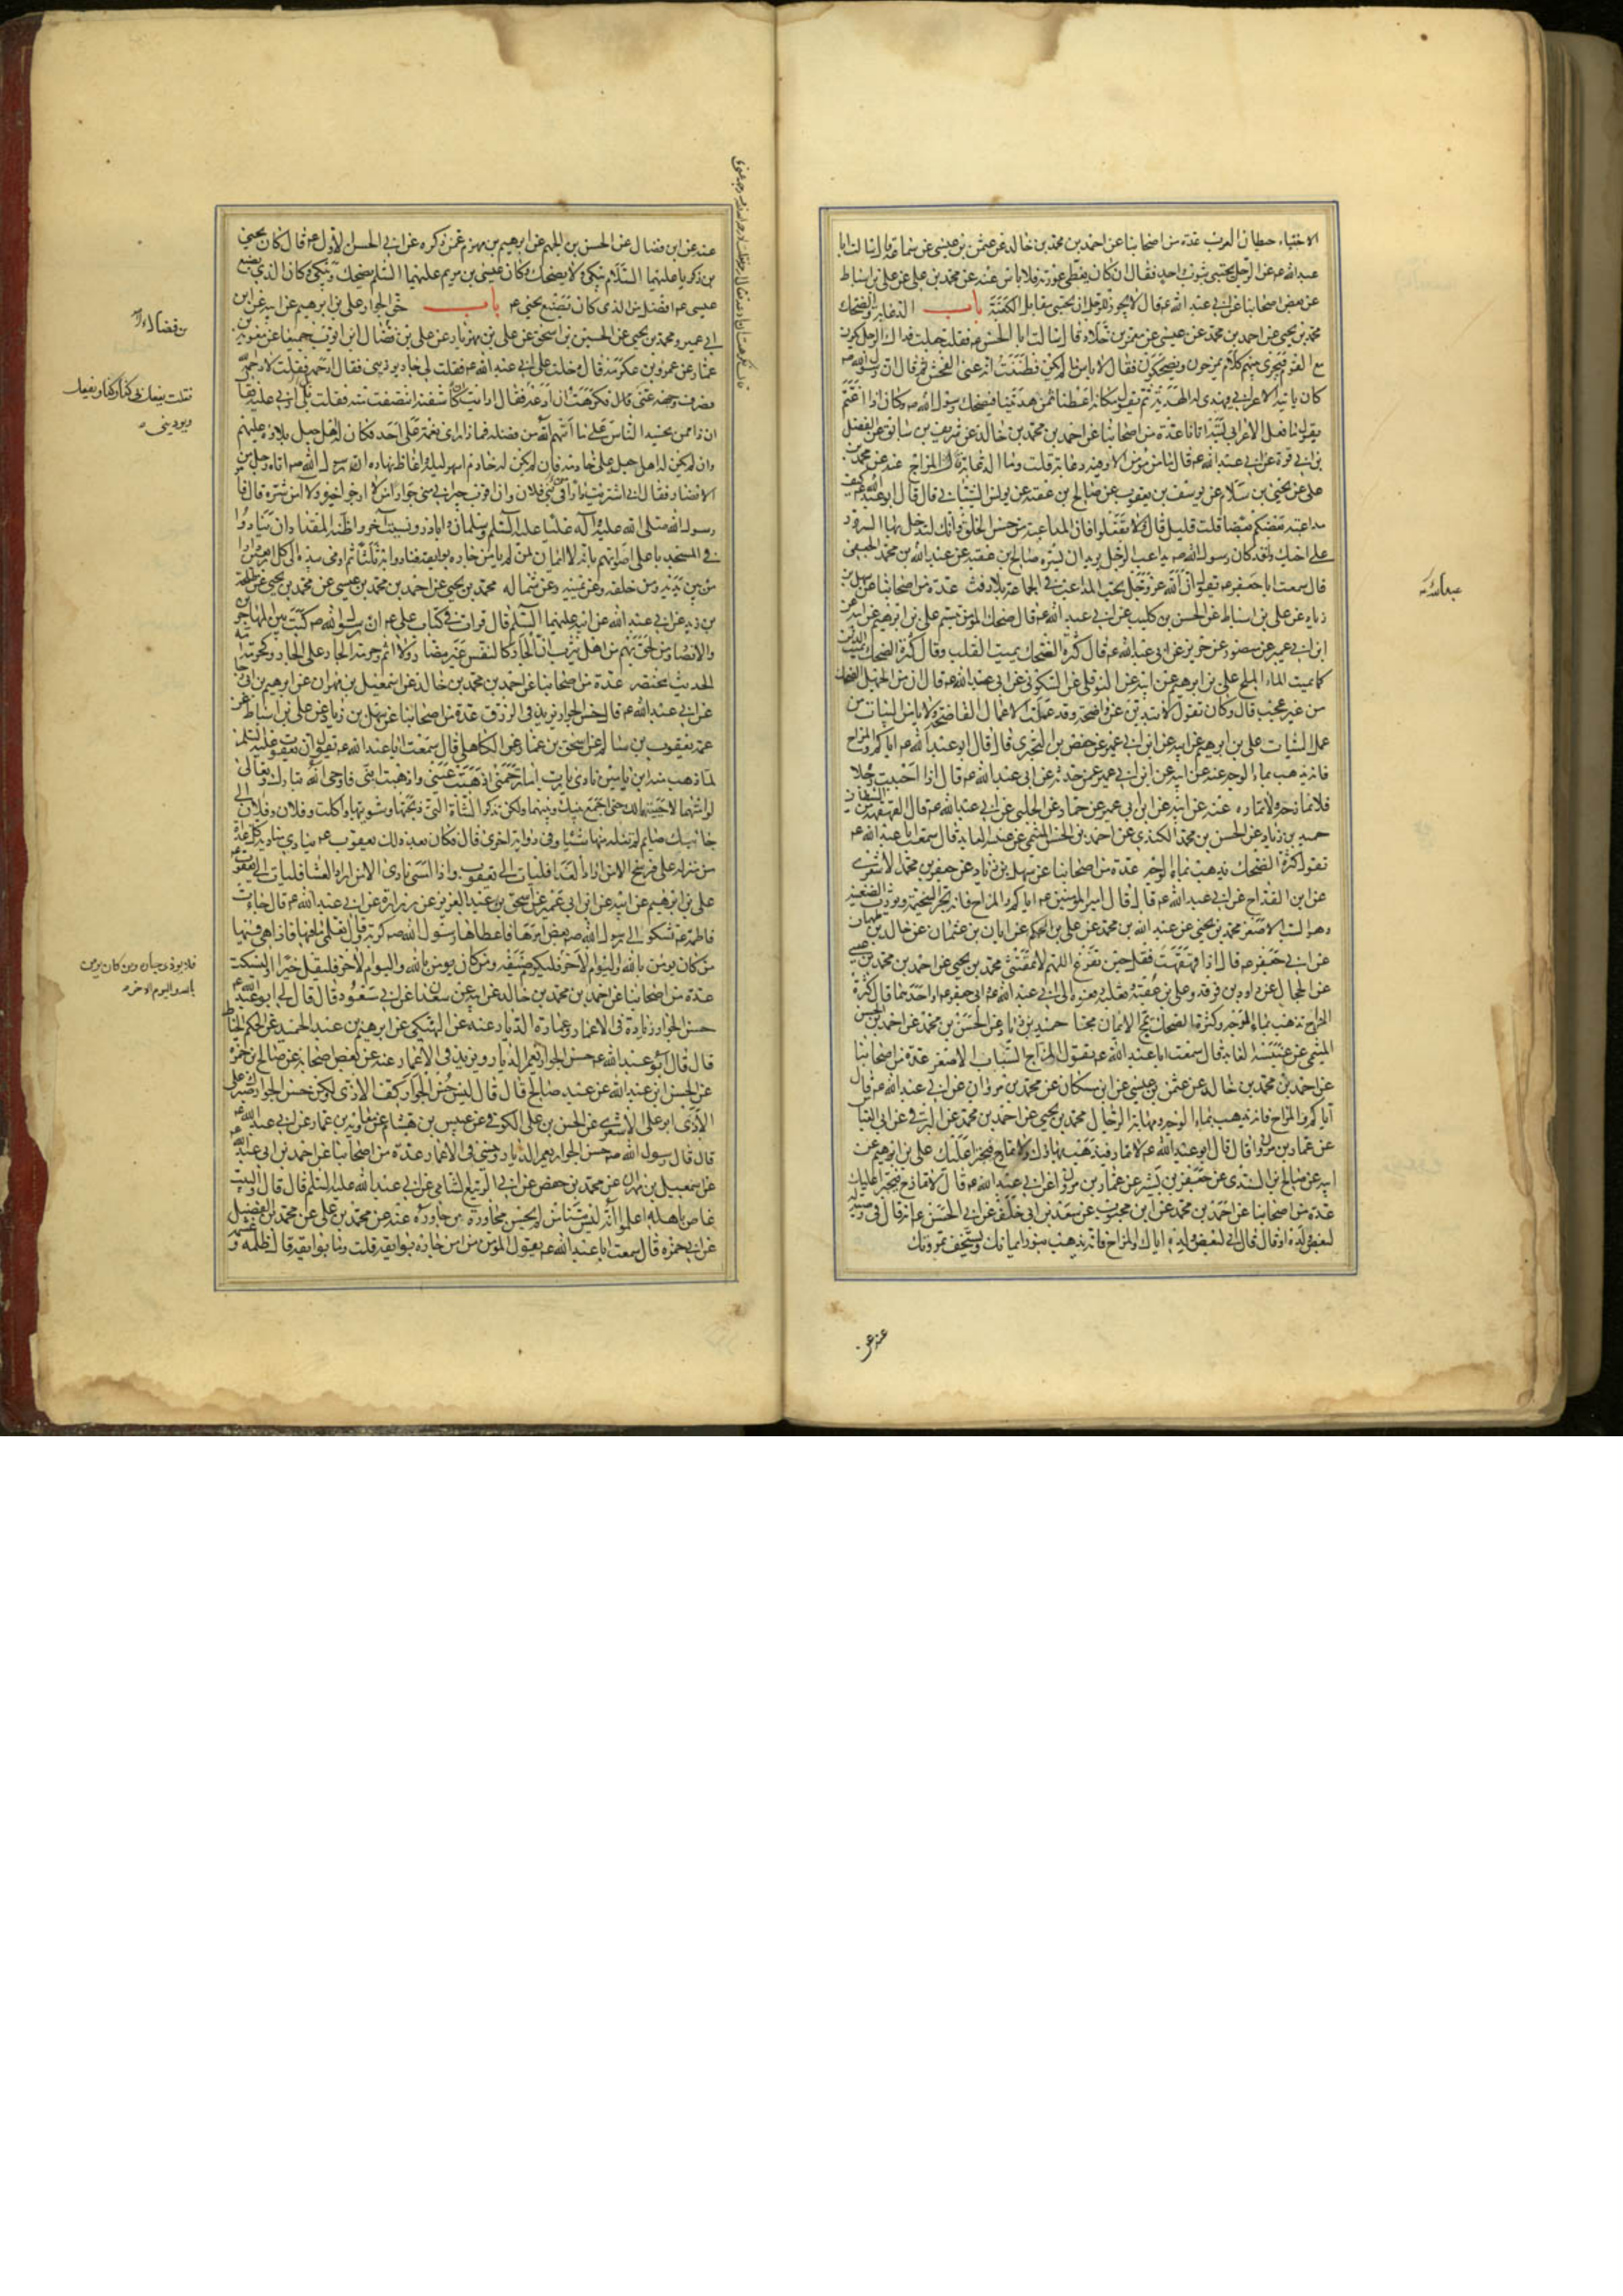 الاحتباء حيطان العرب عدة من اصحابنا عن احمد بن محمد بن خالد عن عثمن بن عيسى عن سماعة قال سالت ابا
عبد الله عه عن الرجل يحتبي بثوب واحد فقال ان كان يغطي عورته فلا باس عنه عن محمد بن علي عن علي بن اسباط
عن بعض اصحابنا عن ابي عبد الله عه قال لا يجوز للرجل ان يحتبي مقابل الكعبة باب الدعابة والضحك
محمد بن يحيى عن احمد بن محمد بن عيسى عن معمر بن خلاد قال سالت ابا الحسن عه فقلت جعلت فداك الرجل يكون
مع القوم فيجري بينهم كلام يمزحون ويضحكون فقال لا باس ما لم يكن فظننت انه عنى الفحش ثم قال ان رسول الله صه
كان ياتيه الاعرابي فيهدي له الهدية ثم يقول مكانه اعطنا ثمن هديتنا فيضحك رسول الله صه وكان اذا اغتم
يقول ما فعل الاعرابي ليته اتانا عدة من اصحابنا عن احمد بن محمد بن خالد عن شريف بن سابق عن الفضل
بن ابي قرة عن ابي عبد الله عه قال ما من مؤمن الا وفيه دعابة قلت وما الدعابة قال المزاح عنه عن محمد بن
علي عن يحيى بن سلام عن يوسف بن يعقوب عن صالح بن عقبة عن يونس الشيباني قال قال ابو عبد الله عه كيف
مداعبة بعضكم بعضا قلت قليل قال فلا تفعلوا فان المداعبة من حسن الخلق وانك لتدخل بها السرور
على اخيك ولقد كان رسول الله صه يداعب الرجل يريد ان يسره صالح بن عقبة عن عبد الله بن محمد الجعفي
قال سمعت ابا جعفر عه يقول ان الله عز وجل يحب المداعب في الجماعة بلا رفث عدة من اصحابنا عن سهل بن
زياد عن علي بن اسباط عن الحسن بن كليب عن ابي عبد الله عه قال ضحك المؤمن تبسم علي بن ابرهيم عن ابيه عن
ابن ابي عمير عن منصور عن حريز عن ابي عبد الله عه قال كثرة الضحك يميت القلب وقال كثرة الضحك تميث الدين
كما يميث الماء الملح علي بن ابرهيم عن ابيه عن النوفلي عن السكوني عن ابي عبد الله عه قال ان من الجهل الضحك
من غير عجب قال وكان يقول لا تبدين عن واضحة وقد عملت الاعمال الفاضحة ولا يامن البيات من
عمل السيات علي بن ابرهيم عن ابيه عن ابن ابي عمير عن حفص بن البختري قال قال ابو عبد الله عه اياكم والمزاح
فانه يذهب بماء الوجه عنه عن ابيه عن ابن ابي عمير عمن حدثه عن ابي عبد الله عه قال اذا احببت رجلا
فلا تمازحه ولا تماره عنه عن ابيه عن ابن ابي عمير عن حماد عن الحلبي عن ابي عبد الله عه قال القهقهة من الشيطان
حميد بن زياد عن الحسن بن محمد الكندي عن احمد بن الحسن الميثمي عن عنبسة العابد قال سمعت ابا عبد الله عه
يقول كثرة الضحك يذهب بماء الوجه عدة من اصحابنا عن سهل بن زياد عن جعفر بن محمد الاشعري
عن ابن القداح عن ابي عبد الله عه قال قال امير المؤمنين عه اياكم والمزاح فانه يجر السخيمة ويورث الضغينة
وهو السب الاصغر محمد بن يحيى عن عبد الله بن محمد عن علي بن الحكم عن ابان بن عثمان عن خالد بن طهمان
عن ابي جعفر عه قال اذا قهقهت فقل حين تفرغ اللهم لا تمقتني محمد بن يحيى عن احمد بن محمد بن عيسى
عن الحجال عن داود بن فرقد وعلي بن عقبة وثعلبة رفعوه الى ابي عبد الله عه وابي جعفر عه او احدهما قال كثرة
المزاح تذهب بماء الوجه وكثرة الضحك تمج الايمان مجا حميد بن زياد عن الحسن بن محمد عن احمد بن الحسن
الميثمي عن عنبسة العابد قال سمعت ابا عبد الله عه يقول المزاح السباب الاصغر عدة من اصحابنا
عن احمد بن محمد بن خالد عن عثمن بن عيسى عن ابن مسكان عن محمد بن مروان عن ابي عبد الله عه قال
اياكم والمزاح فانه يذهب بماء الوجه ومهابة الرجال محمد بن يحيى عن احمد بن محمد عن البرقي عن ابي العباس
عن عمار بن مروان قال قال ابو عبد الله عه لا تمار فيذهب بهاؤك ولا تمازح فيجترا عليك علي بن ابرهيم عن
ابيه عن صالح بن السندي عن جعفر بن بشير عن عمار بن مروان عن ابي عبد الله عه قال لا تمازح فيجترا عليك
عدة من اصحابنا عن احمد بن محمد عن ابن محبوب عن سعد بن ابي خلف عن ابي الحسن عه انه قال في وصية له
لبعض ولده او قال قال ابي لبعض ولده اياك والمزاح فانه يذهب بنور ايمانك ويستخف بمروتك
عنه عن
عنه عن ابن فضال عن الحسن بن الجهم عن ابرهيم بن مهزم عمن ذكره عن ابي الحسن الاول عه قال كان يحيى
بن زكريا عليهما السلام يبكي ولا يضحك وكان عيسى بن مريم عليهما السلم يضحك ويبكي وكان الذي يصنع
عيسى عه افضل من الذي كان يصنع يحيى عه باب حق الجوار علي بن ابرهيم عن ابيه عن ابن
ابي عمير ومحمد بن يحيى عن الحسين بن اسحق عن علي بن مهزيار عن علي بن فضال عن فضالة بن ايوب جميعا عن معوية بن
عمار عن عمرو بن عكرمة قال دخلت على ابي عبد الله عه فقلت لي جار يوذيني فقال ارحمه فقلت لا رحمه الله
فصرف وجهه عني قال فكرهت ان ادعه فقال ارايت ان كاشفته انتصفت منه فقلت بلى اربي عليه فقال
ان ذا ممن يحسد الناس على ما اتهم الله من فضله فاذا راى نعمة على احد فكان له اهل جعل بلاءه عليهم
وان لم يكن له اهل جعله على خادمه فان لم يكن له خادم اسهر ليله واغاظ نهاره ان رسول الله صه اتاه رجل من
الانصار فقال اني اشتريت دارا في بني فلان وان اقرب جيراني مني جوارا من لا ارجو خيره ولا آمن شره قال فامر
رسول الله صلى الله عليه وآله عليا عليه السلم وسلمان وابا ذر ونسيت آخر واظنه المقداد ان ينادوا
في المسجد باعلى اصواتهم بانه لا ايمان لمن لم يامن جاره بوائقه فنادوا بها ثلثا ثم اومى بيده الى كل اربعين دارا
من بين يديه ومن خلفه وعن يمينه وعن شماله محمد بن يحيى عن احمد بن محمد بن عيسى عن محمد بن يحيى عن طلحة
بن زيد عن ابي عبد الله عن ابيه عليهما السلم قال قرات في كتاب علي عه ان رسول الله صه كتب بين المهاجرين
والانصار ومن لحق بهم من اهل يثرب ان الجار كالنفس غير مضار ولا اثم وحرمة الجار على الجار كحرمة امه
الحديث مختصر عدة من اصحابنا عن احمد بن محمد بن خالد عن اسمعيل بن مهران عن ابرهيم بن ابي رجا
عن ابي عبد الله عه قال حسن الجوار يزيد في الرزق عدة من اصحابنا عن سهل بن زياد عن علي بن اسباط عن
عمه يعقوب بن سالم عن اسحق بن عمار عن الكاهلي قال سمعت ابا عبد الله عه يقول ان يعقوب عليه السلم
لما ذهب منه ابن يامين نادى يا رب اما ترحمني اذهبت عيني واذهبت ابني فاوحى الله تبارك وتعالى
لو امتهما لاحييتهما لك حتى اجمع بينك وبينهما ولكن تذكر الشاة التي ذبحتها وشويتها واكلت وفلان وفلان الى
جانبك صايم لم تنله منها شيئا وفي رواية اخرى قال فكان بعد ذلك يعقوب عه ينادي مناديه كل غداة
من منزله على فرسخ الا من اراد الغدا فليات الى يعقوب واذا امسى نادى الا من اراد العشا فليات الى يعقوب
علي بن ابرهيم عن ابيه عن ابن ابي عمير عن اسحق بن عبد العزيز عن زرارة عن ابي عبد الله عه قال جاءت
فاطمة عه تشكو الى رسول الله صه بعض امرها فاعطاها رسول الله صه كربة وقال تعلمي ما فيها فاذا فيها
من كان يومن بالله واليوم الاخر فليكرم ضيفه ومن كان يومن بالله واليوم الاخر فليقل خيرا او ليسكت
عدة من اصحابنا عن احمد بن محمد بن خالد عن ابيه عن سعدان عن ابي مسعود قال قال لي ابو عبد الله عه
حسن الجوار زيادة في الاعمار وعمارة الديار عنه عن النهيكي عن ابرهيم بن عبد الحميد عن الحكم الخياط
قال قال ابو عبد الله عه حسن الجوار يعمر الديار ويزيد في الاعمار عنه عن بعض اصحابه عن صالح بن حمزة
عن الحسن بن عبد الله عن عبد صالح قال قال ليس حسن الجوار كف الاذى لكن حسن الجوار صبر على
الاذى ابو علي الاشعري عن الحسن بن علي الكوفي عن عبيس بن هشام عن معوية بن عمار عن ابي عبد الله عه
قال قال رسول الله صه حسن الجوار يعمر الديار وينسي في الاعمار عدة من اصحابنا عن احمد بن ابي عبد الله
عن اسمعيل بن مهران عن محمد بن حفص عن ابي الربيع الشامي عن ابي عبد الله عليه السلم قال قال والبيت
غاص باهله اعلموا انه ليس منا من لم يحسن مجاورة من جاوره عنه عن محمد بن علي عن محمد بن الفضيل
عن ابي حمزة قال سمعت ابا عبد الله عه يقول المؤمن من امن جاره بوايقه قلت وما بوايقه قال ظلمه وغشمه
فلا يوذي جاره ومن كان يومن
بالله واليوم الاخر